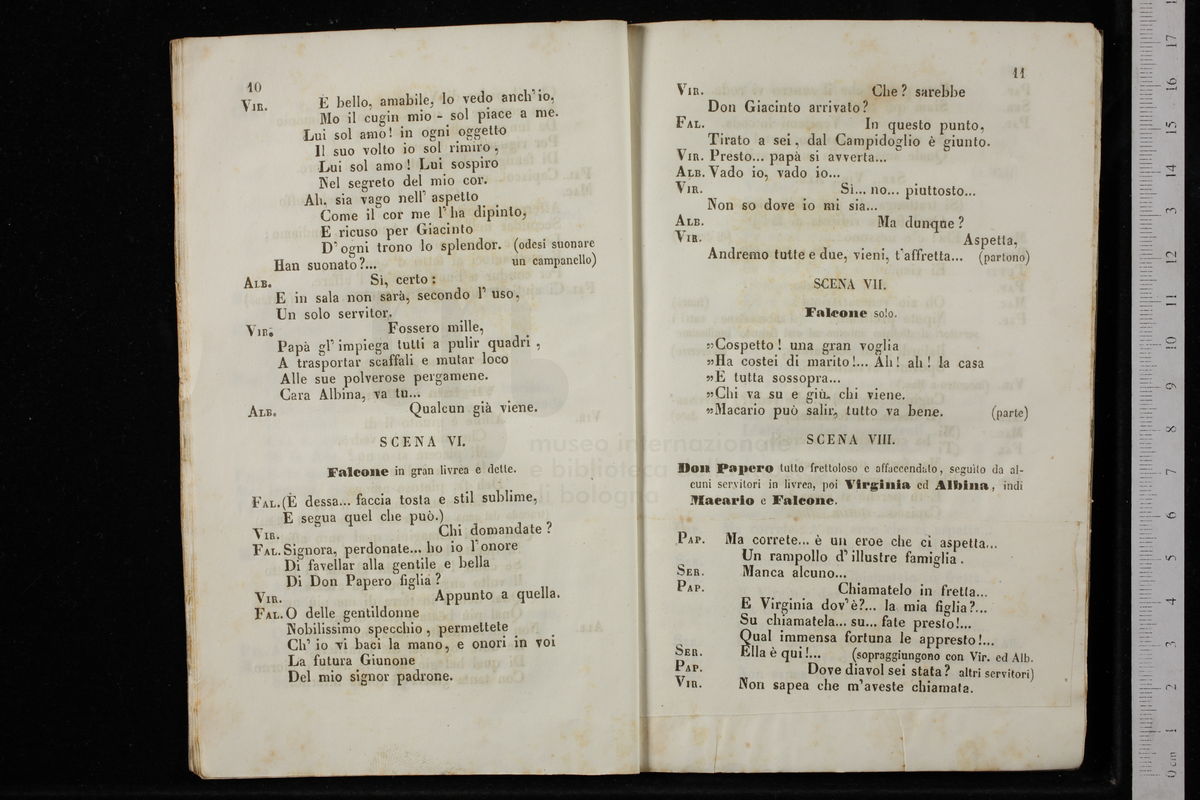 10
VIR. È bello, amabile, lo vedo anch' io,
Mo il cugin mio - sol piace a me.
Lui sol amo! in ogni oggetto
Il suo volto io sol rimiro,
Lui sol amo! Lui sospiro
Nel segreto del mio cor.
Ah. sia vago nell' aspetto
Come il cor me l' ha dipinto,
E ricuso per Giacinto
D' ogni trono lo splendor. (odesi suonare
Han suonato?... un campanello)
ALB. Sì, certo:
E in sala non sarà, secondo l' uso,
Un solo servitor.
VIR. Fossero mille,
Papà gl' impiega tutti a pulir quadri,
A trasportar scaffali e mutar loco
Alle sue polverose pergamene.
Cara Albina, va tu...
ALB. Qualcun già viene.
SCENA VI.
Falcone in gran livrea e dette.
FAL. (È dessa... faccia tosta e stil sublime,
E segua quel che può.)
VIR. Chi domandate?
FAL. Signora, perdonate... ho io l'onore
Di favellar alla gentile e bella
Di Don Papero figlia?
VIR. Appunto a quella.
FAL. O delle gentildonne
Nobilissimo specchio, permettete
Ch' io vi baci la mano, e onori in voi
La futura Giunone
Del mio signor padrone.
11
VIR. Che? sarebbe
Don Giacinto arrivato?
FAL. In questo punto,
Tirato a sei, dal Campidoglio è giunto.
VIR. Presto... papà si avverta...
ALB. Vado io, vado io...
VIR. Sì... no... piuttosto...
Non so dove io mi sia...
ALB. Ma dunque?
VIR. Aspetta,
Andremo tutte e due, vieni, t'affretta... (partono)
SCENA VII.
Falcone solo.
»Cospetto! una gran voglia
»Ha costei di marito!... Ah! ah! la casa
»E tutta sossopra...
»Chi va su e giù, chi viene.
»Macario può salir, tutto va bene. (parte)
SCENA VIII.
Don Papero tutto frettoloso e affaccendato, seguito da al-
cuni servitori in livrea, poi Virginia ed Albina, indi
Macario e Falcone.
PAP. Ma correte... è un eroe che ci aspetta...
Un rampollo d' illustre famiglia.
SER. Manca alcuno...
PAP. Chiamatelo in fretta...
E Virginia dov'è?... la mia figlia?...
Su chiamatela... su... fate presto!...
Qual immensa fortuna le appresto!...
SER. Ella è qui!... (sopraggiungono con Vir. ed Alb.
PAP. Dove diavol sei stata? altri servitori)
VIR. Non sapea che m'aveste chiamata.
museo internazionale
e biblioteca
di bologna